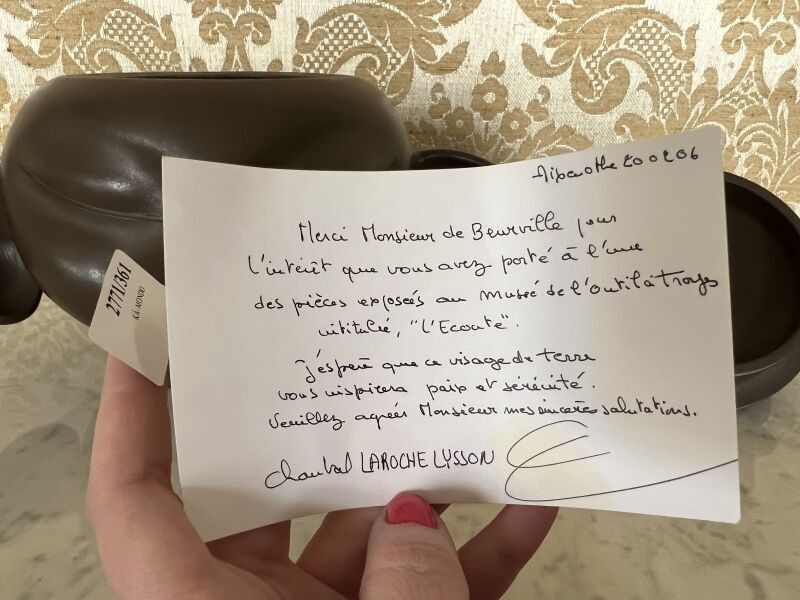 Aixenothe 200206
Merci Monsieur de Beurville pour
l'intérêt que vous avez porté à l'une
des pièces exposées au musée de l'outil à Troyes
intitulée, "l'Ecoute".
J'espère que ce visage de terre
vous inspirera paix et sérénité.
Veuillez agréer Monsieur mes sincères salutations.
Chantal LAROCHE LYSSON
2771/361